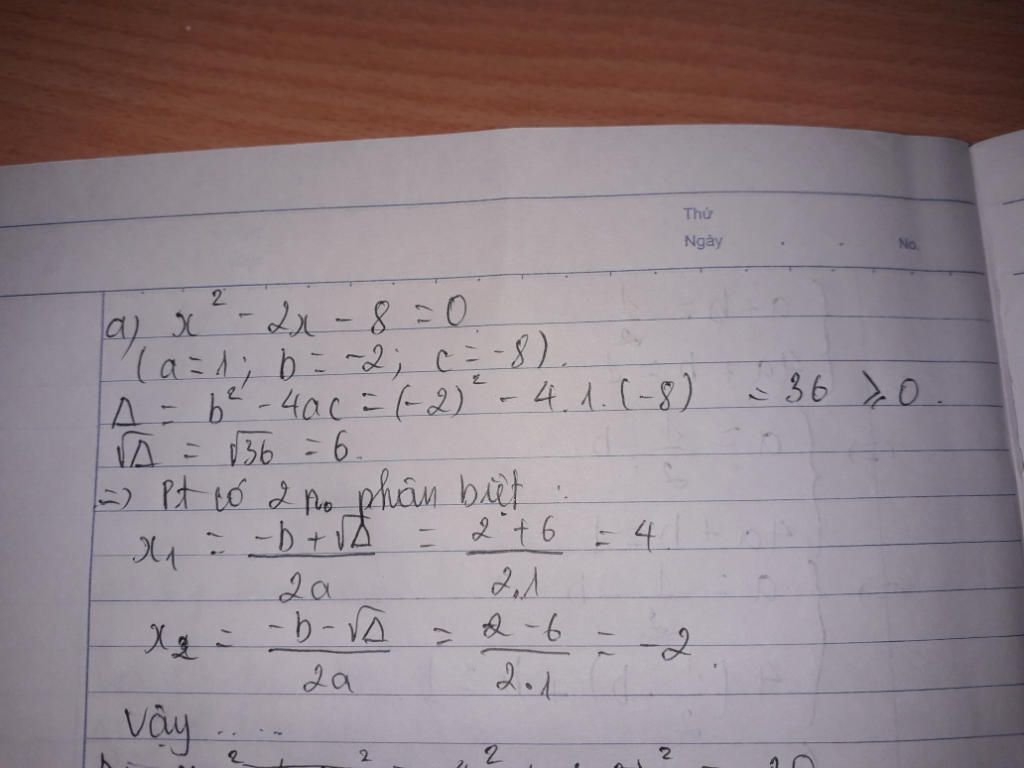 Thứ
Ngày . . No.
a) x² - 2x - 8 = 0
(a = 1; b = -2; c = -8).
Δ = b² - 4ac = (-2)² - 4.1.(-8) = 36 ⩾ 0.
√Δ = √36 = 6.
=> Pt có 2 no phân biệt :
x₁ = (-b + √Δ)/(2a) = (2 + 6)/(2.1) = 4
x₂ = (-b - √Δ)/(2a) = (2 - 6)/(2.1) = -2.
Vậy .....